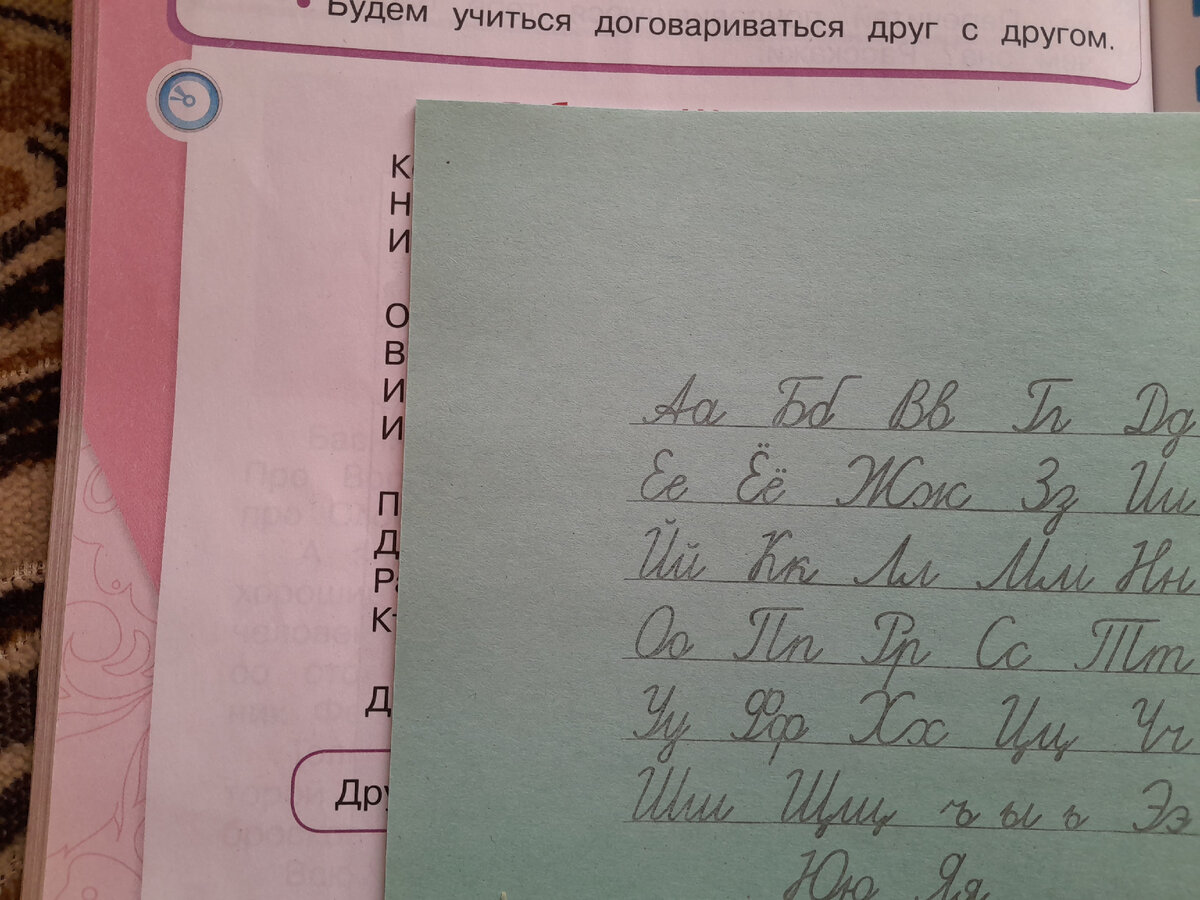 Будем учиться договариваться друг с другом.
К
Н
И
О
В
И
И
П
Д
Ра
К
Д
Дру
Аа Бб Вв Гг Дд
Ее Ёё Жж Зз Ии
Йй Кк Лл Мм Нн
Оо Пп Рр Сс Тт
Уу Фф Хх Цц Чч
Шш Щщ ъ ы ь Ээ
Юю Яя